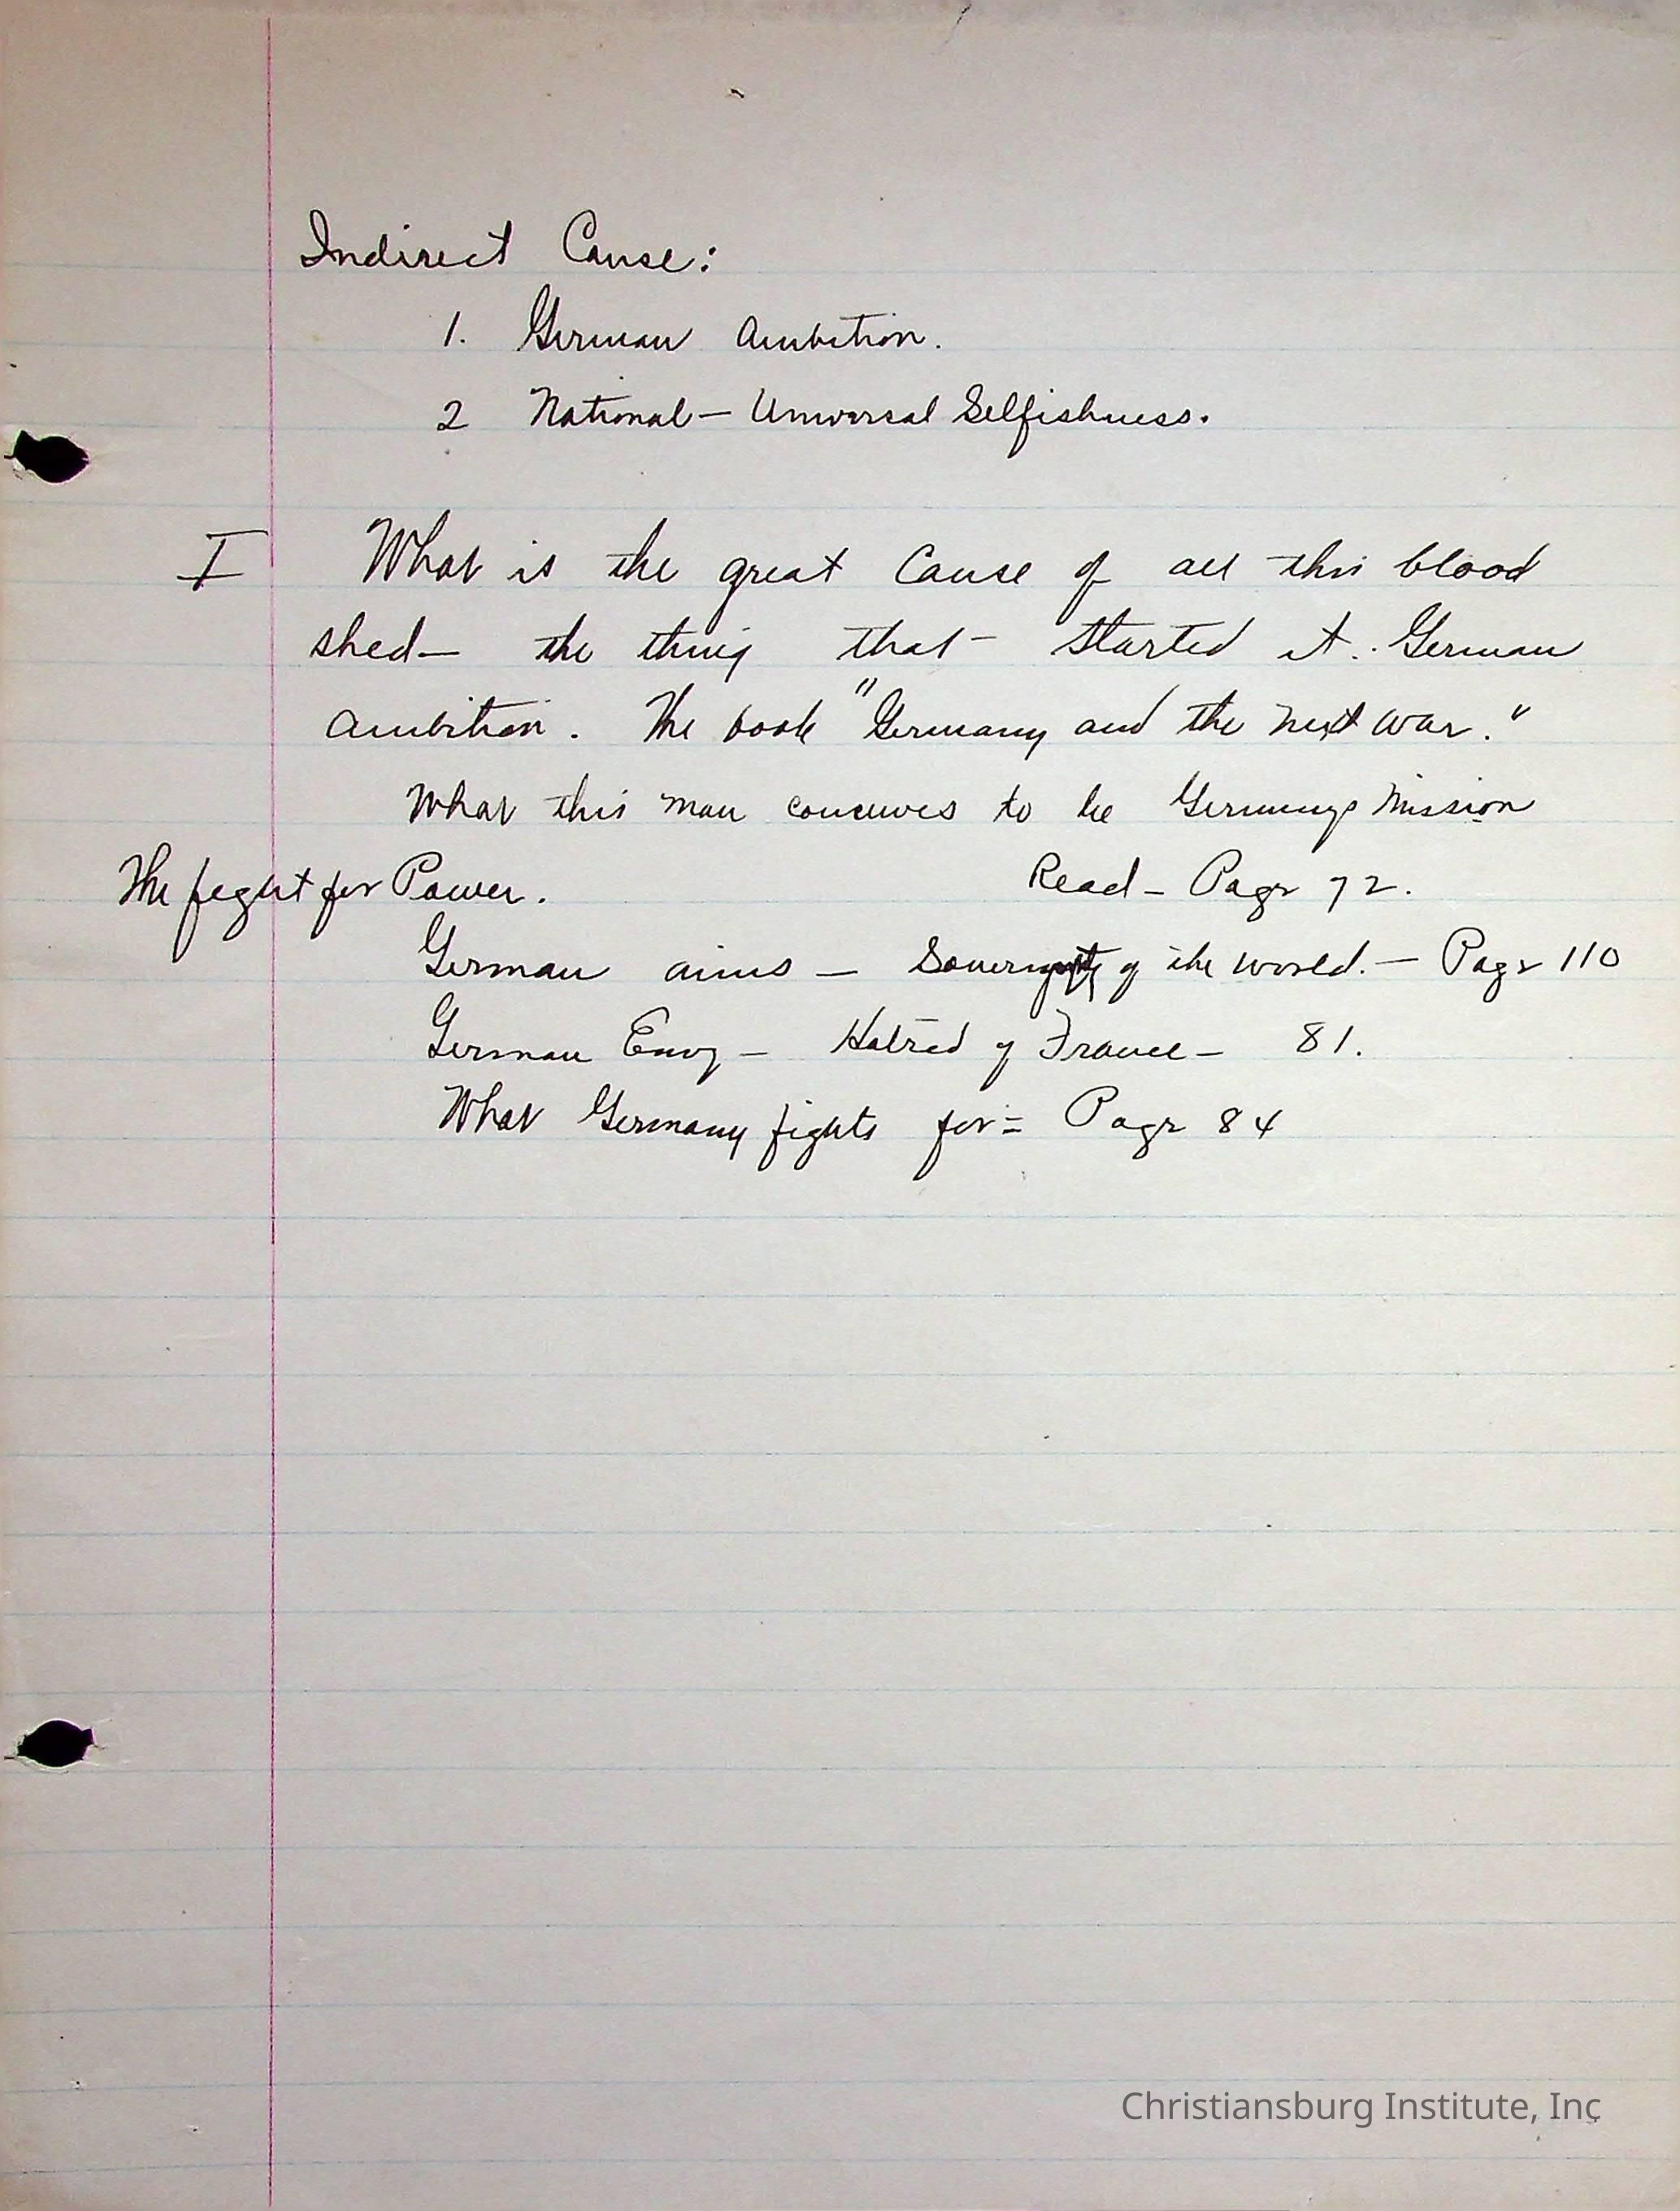 Indirect Cause:
1. German Ambition.
2 National — Universal Selfishness.
I What is the great Cause of all this blood
shed — the thing that started it. German
Ambition. The book "Germany and the next war."
What this man conceives to be Germanys Mission
The fight for Power. Read — Page 72.
German aims — of the world. — Page 110
German Envy — Hatred of France — 81.
What Germany fights for = Page 84
Christiansburg Institute, Inc